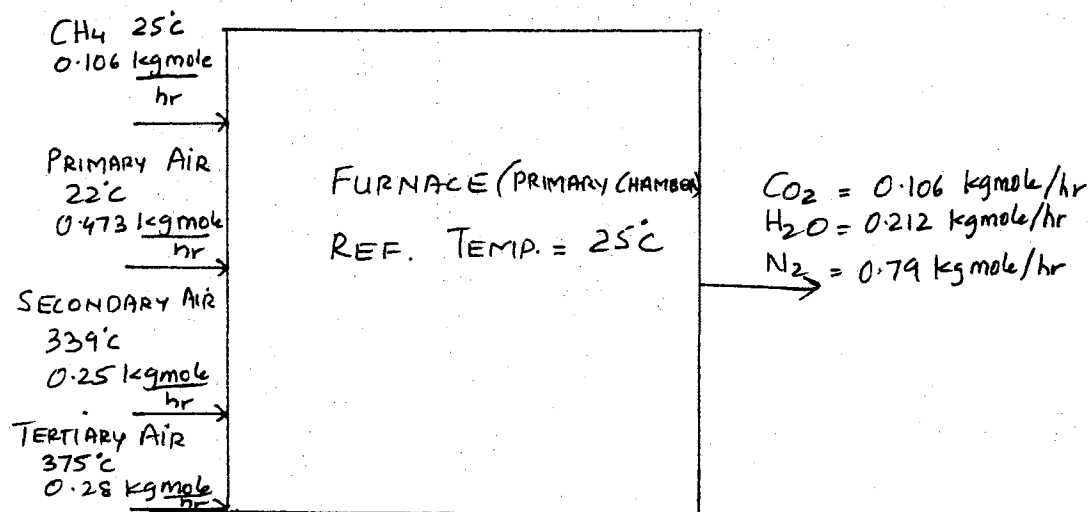 CH4 25°C
0.106 kgmole
hr
PRIMARY AIR
22°C
0.473 kgmole
hr
SECONDARY AIR
339°C
0.25 kgmole
hr
TERTIARY AIR
375°C
0.28 kgmole
hr
FURNACE (PRIMARY CHAMBER)
REF. TEMP. = 25°C
CO2 = 0.106 kgmole/hr
H2O = 0.212 kgmole/hr
N2 = 0.79 kgmole/hr